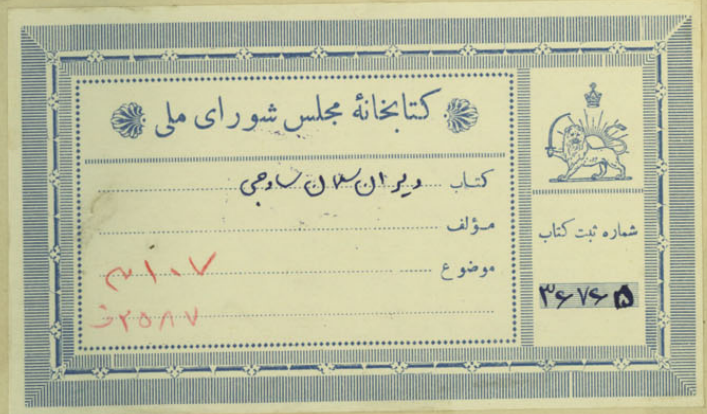 کتابخانهٔ مجلس شورای ملی
کتاب دیوان سلمان ساوجی
مؤلف
موضوع
شماره ثبت کتاب
۳۶۷۶۵
۲۵۸۷